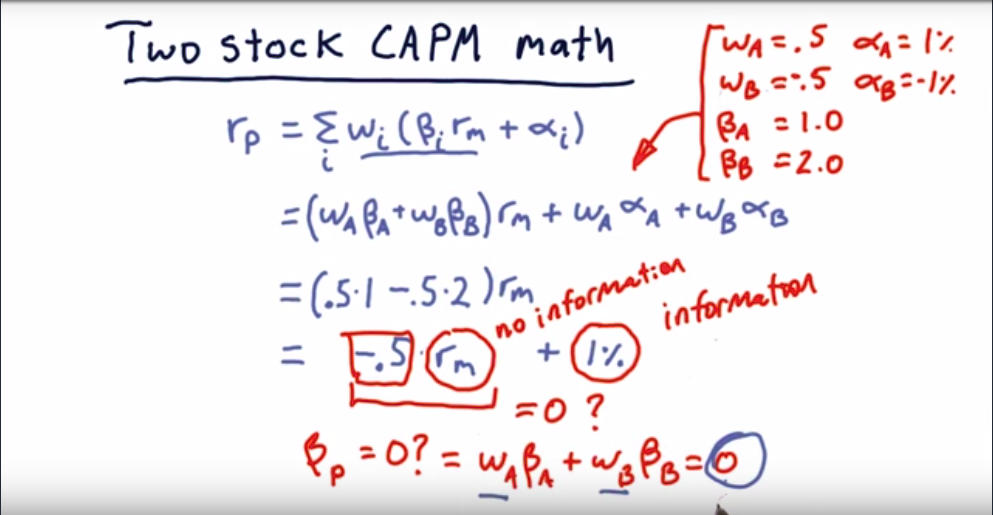 Two stock CAPM math
w_A = .5 α_A = 1%
w_B = -.5 α_B = -1%
β_A = 1.0
β_B = 2.0
r_p = Σ_i w_i (β_i r_m + α_i)
= (w_A β_A + w_B β_B) r_m + w_A α_A + w_B α_B
= (.5·1 - .5·2) r_m
no information
information
= -.5 · r_m + 1%
= 0 ?
β_p = 0? = w_A β_A + w_B β_B = 0